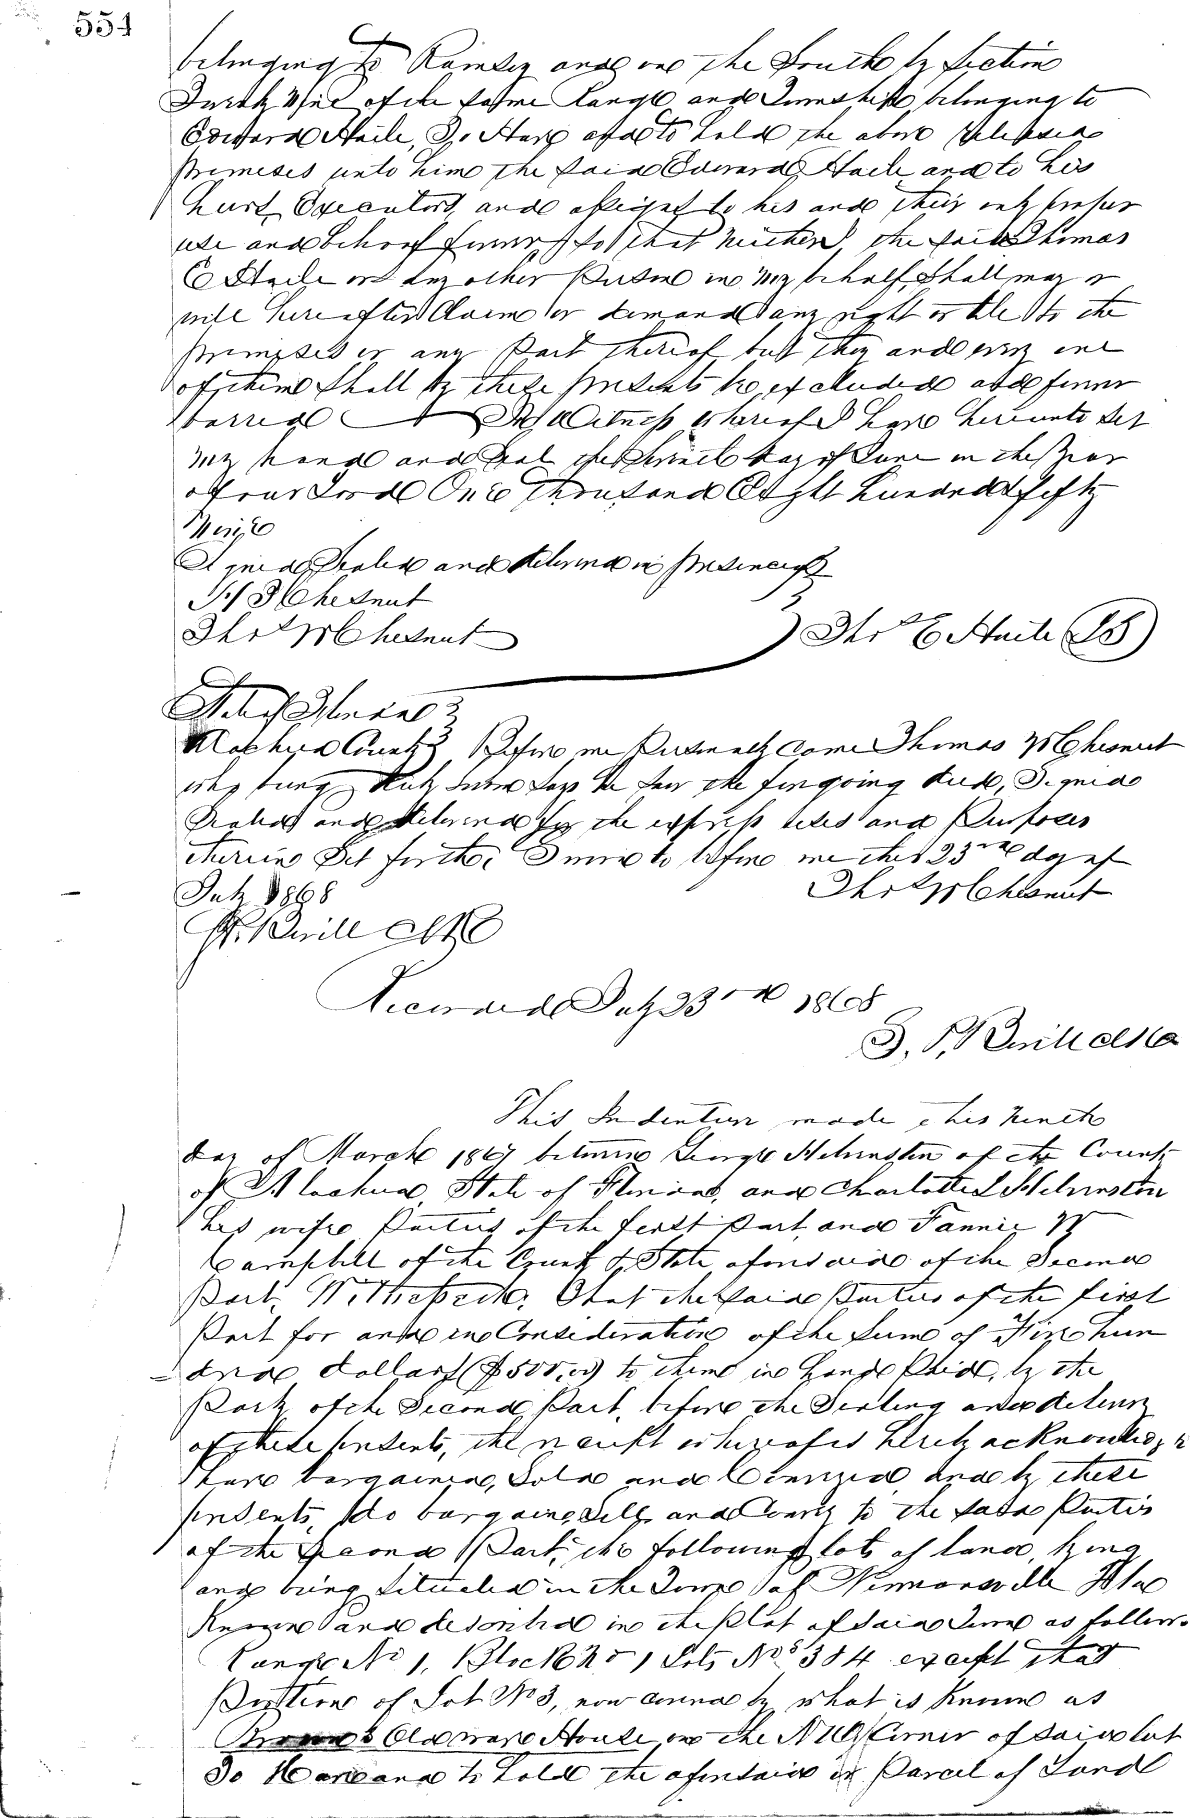 554
belonging to Ramsey and on the South by Section
Twenty Nine of the same Range and Township belonging to
Edward Haile, To Have and to hold the above released
premises unto him the said Edward Haile and to his
heirs, Executors, and assigns to his and their only proper
use and behoof forever, so that neither, the said Thomas
E Haile or any other person in my behalf, shall may or
will hereafter Claim or demand any right or title to the
premises or any part thereof but they and every one
of them shall by these presents be excluded and forever
barred In Witness whereof I have hereunto set
my hand and seal the day of June in the Year
of our Lord One Thousand Eight hundred & fifty
Nine
Signed Sealed and delivered in presence of
Chesnut
Thos W Chesnut } Thos E Haile (LS)
State of Florida }
Alachua County } Before me Personally came Thomas W Chesnut
who being duly sworn says he saw the foregoing deed, Signed
Sealed and delivered for the express uses and Purposes
therein Set forth; Sworn to before me this 23rd day of
July 1868 Thos W Chesnut
Clk
Recorded July 23rd 1868
Clk
This Indenture made this ninth
day of March 1867 between George Helvenston of the County
of Alachua, State of Florida, and Charlotte L Helvenston
his wife Parties of the first Part, and Fannie W
Campbell of the County & State aforesaid of the Second
Part, Witnesseth, That the said Parties of the first
Part for and in Consideration of the Sum of Five hun
dred dollars ($500.00) to them in hand Paid, by the
Party of the Second Part, before the Sealing and delivery
of these presents, the receipt whereof is hereby acknowledged
have bargained, Sold and Conveyed, and by these
presents, do bargain, Sell, and Convey to the said Parties
of the Second Part, the following lots of land, lying
and being situated in the Town of Newnansville Fla
Known and described in the Plat of Said Town as follows
Range No 1, Block No 1 Lots Nos 3 & 4 except that
Portion of Lot No 3, now covered by what is Known as
Browns Old ware House, on the NW Corner of said lot
To Have and to hold the aforesaid Parcel of Land